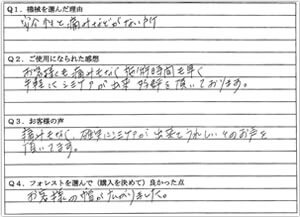 Q1．機械を選んだ理由
安全性と痛みなどがない所
Q2．ご使用になられた感想
お客様も痛みもなく施術時間も早く
手軽にシミケアが出来 好評を頂いております。
Q3．お客様の声
痛みもなく、確実にシミケアが出来てうれしいとのお声を
頂いてます。
Q4．フォレストを選んで（購入を決めて）良かった点
お客様の幅が広がりました。